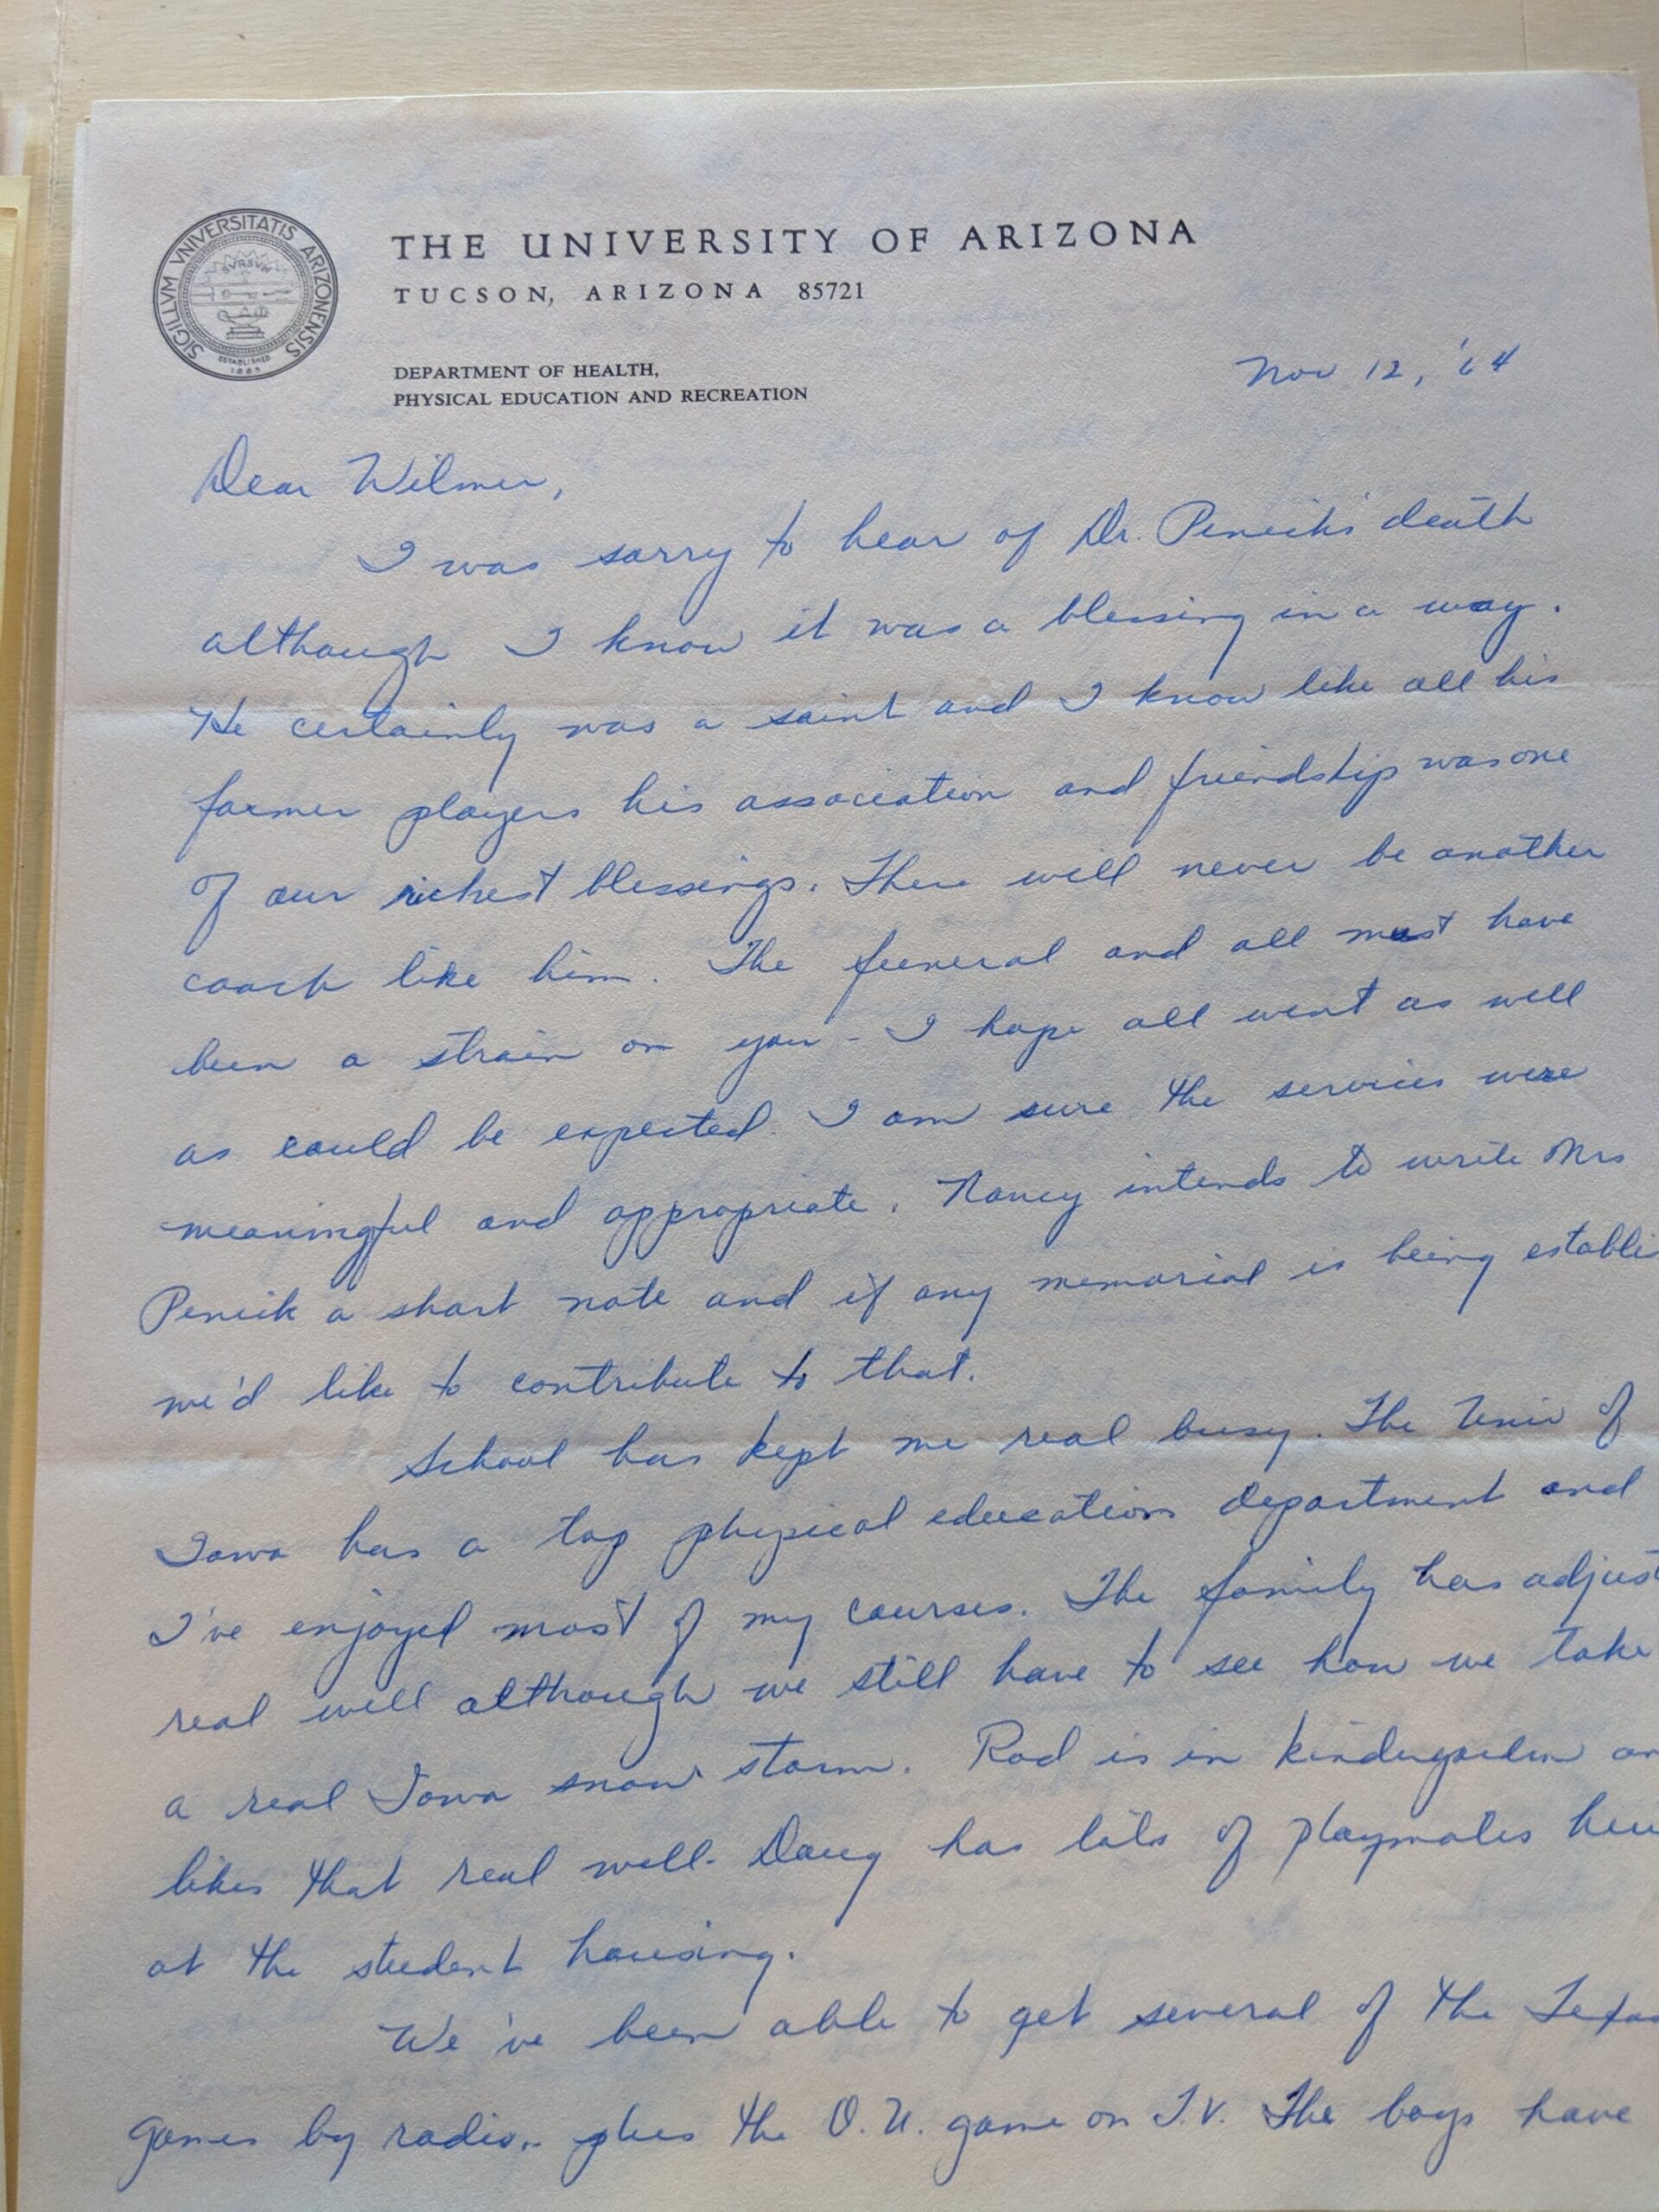 SIGILLVM VNIVERSITATIS ARIZONENSIS
SVRSVM
ESTABLISHED
1885
THE UNIVERSITY OF ARIZONA
TUCSON, ARIZONA 85721
DEPARTMENT OF HEALTH,
PHYSICAL EDUCATION AND RECREATION
Nov 12, '64
Dear Wilmer,
I was sorry to hear of Dr. Penick's death
although I know it was a blessing in a way.
He certainly was a saint and I know like all his
former players his association and friendship was one
of our richest blessings. There will never be another
coach like him. The funeral and all must have
been a strain on you - I hope all went as well
as could be expected. I am sure the services were
meaningful and appropriate. Nancy intends to write Mrs
Penick a short note and if any memorial is being establi
we'd like to contribute to that.
School has kept me real busy. The Univ of
Iowa has a top physical education department and
I've enjoyed most of my courses. The family has adjust
real well although we still have to see how we take
a real Iowa snow storm. Rod is in kindergarden an
likes that real well. Doug has lots of playmates here
at the student housing.
We've been able to get several of the Texas
games by radio.. plus the O.U. game on T.V. The boys have